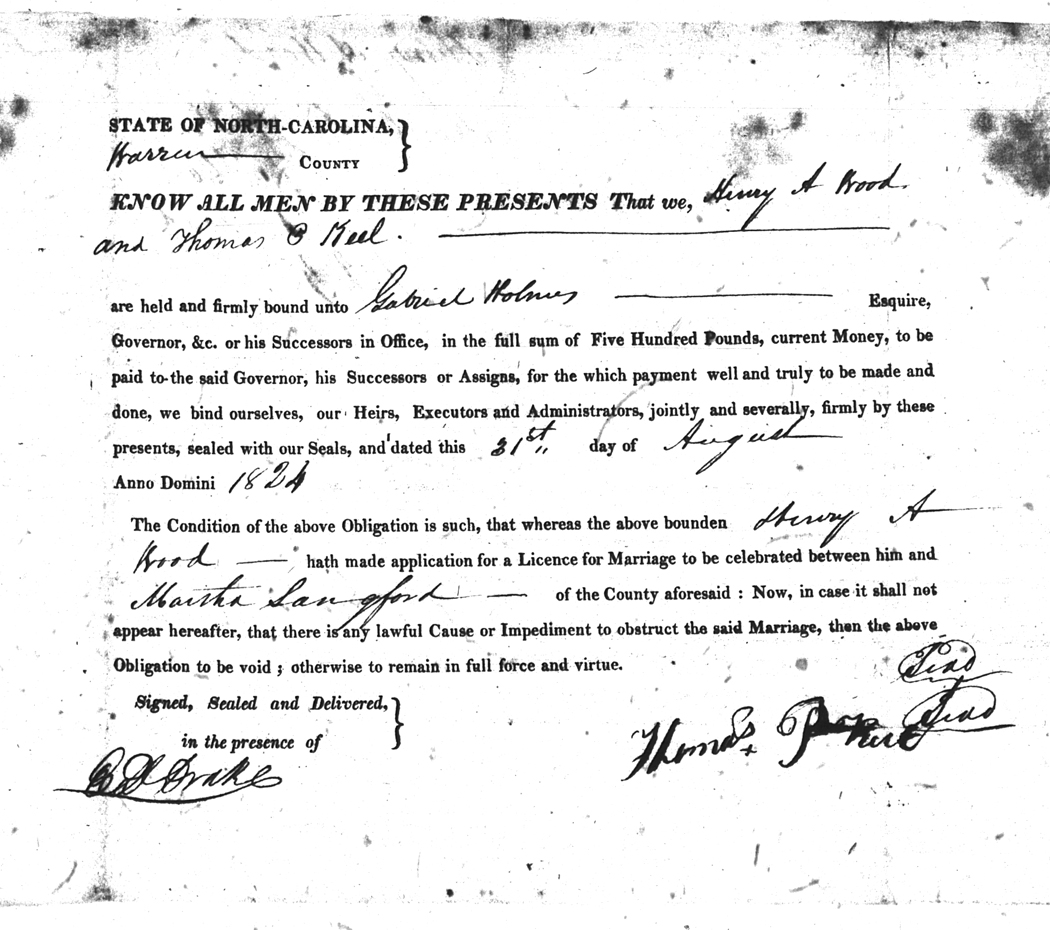 STATE OF NORTH-CAROLINA,
Warren COUNTY
KNOW ALL MEN BY THESE PRESENTS That we, Henry A Wood.
and Thomas P Keel.
are held and firmly bound unto Gabriel Holmes Esquire,
Governor, &c. or his Successors in Office, in the full sum of Five Hundred Pounds, current Money, to be
paid to the said Governor, his Successors or Assigns, for the which payment well and truly to be made and
done, we bind ourselves, our Heirs, Executors and Administrators, jointly and severally, firmly by these
presents, sealed with our Seals, and dated this 31st day of August
Anno Domini 1824
The Condition of the above Obligation is such, that whereas the above bounden Henry A
Wood hath made application for a Licence for Marriage to be celebrated between him and
Martha Langford of the County aforesaid : Now, in case it shall not
appear hereafter, that there is any lawful Cause or Impediment to obstruct the said Marriage, then the above
Obligation to be void ; otherwise to remain in full force and virtue.
Signed, Sealed and Delivered,
in the presence of
Thomas
Drake